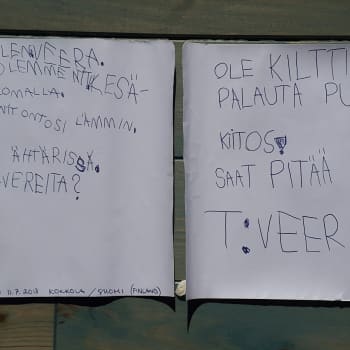 OLEN VEERA.
OLEMME NYT KESÄ-
LOMALLA.
NYT ON TOSI LÄMMIN.
ÄHTÄRISSÄ.
VEREITA?
11.7.2013 KOKKOLA / SUOMI (FINLAND)
OLE KILTTI
PALAUTA PU
KIITOS!
SAAT PITÄÄ
T: VEER